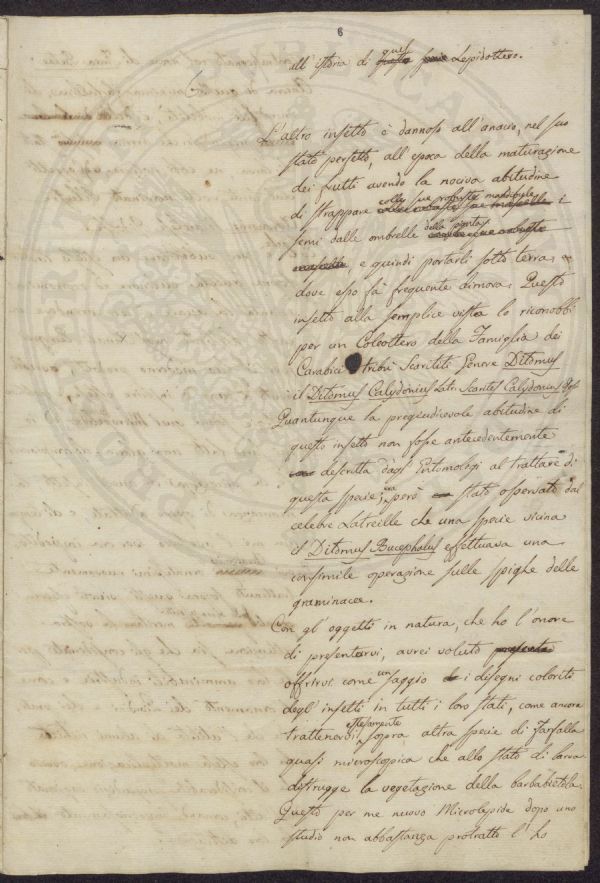 8
all'istoria di quel questo Lepidottero.
L'altro insetto è dannoso all'anacio, nel suo
stato perfetto, all'epoca della maturazione
dei frutti avendo la nociva abitudine
di strappare colle sue robuste mandibole i
semi dalle ombrelle della pianta
e quindi portarli sotto terra
dove esso fà frequente dimora. Questo
insetto alla semplice vista lo riconobbi
per un Coleottero della Famiglia dei
Carabici tribù Scarititi Genere Ditomus
il Ditomus Calydonius Latr. Scarites Calydonius
Quantunque la pregiudicevole abitudine di
questo insetto non fosse antecedentemente
descritta dagl'Entomologi al trattare di
questa specie; era però stato osservato dal
celebre Latreille che una specie vicina
il Ditomus Bucephalus effettuava una
consimile operazione sulle spighe delle
graminacee.
Con gl'oggetti in natura, che ho l'onore
di presentarvi, avrei voluto
offrirvi come un saggio i disegni coloriti
degl'insetti in tutti i loro stati, come ancora
trattenervi estesamente sopra altra specie di Farfalla
quasi microscopica che allo stato di larva
distrugge la vegetazione della barbabietola.
Questo per me nuovo Microlepide dopo uno
studio non abbastanza protratto l'ho